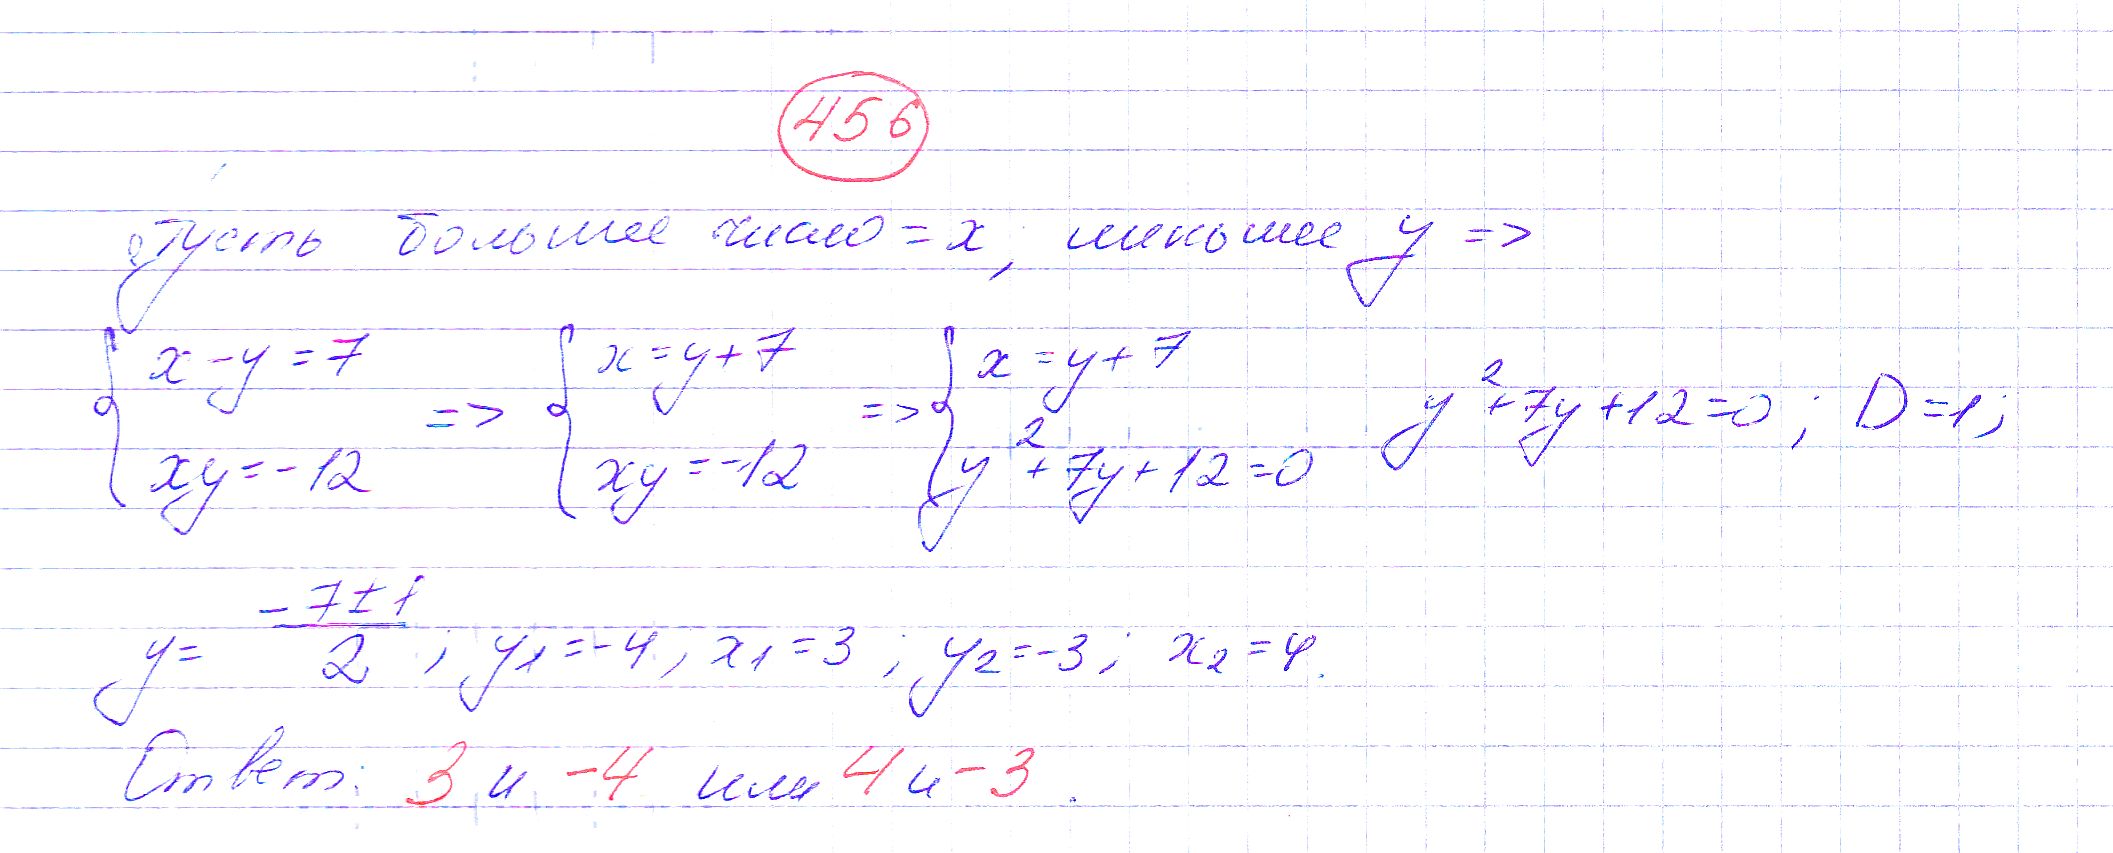 456
Пусть большее число = x, меньшее y =>
{ x - y = 7 => { x = y + 7 => { x = y + 7
{ xy = -12 { xy = -12 { y² + 7y + 12 = 0 y² + 7y + 12 = 0; D = 1;
y = (-7 ± 1)/2; y₁ = -4; x₁ = 3; y₂ = -3; x₂ = 4.
Ответ: 3 и -4 или 4 и -3.